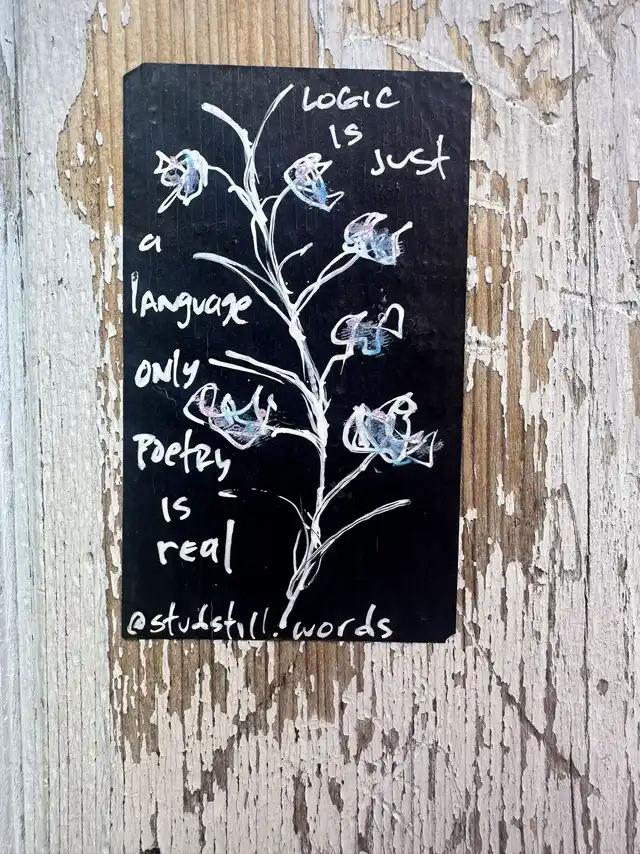 LOGIC
is
Just
a
language
only
Poetry
is
real
@studstill.words